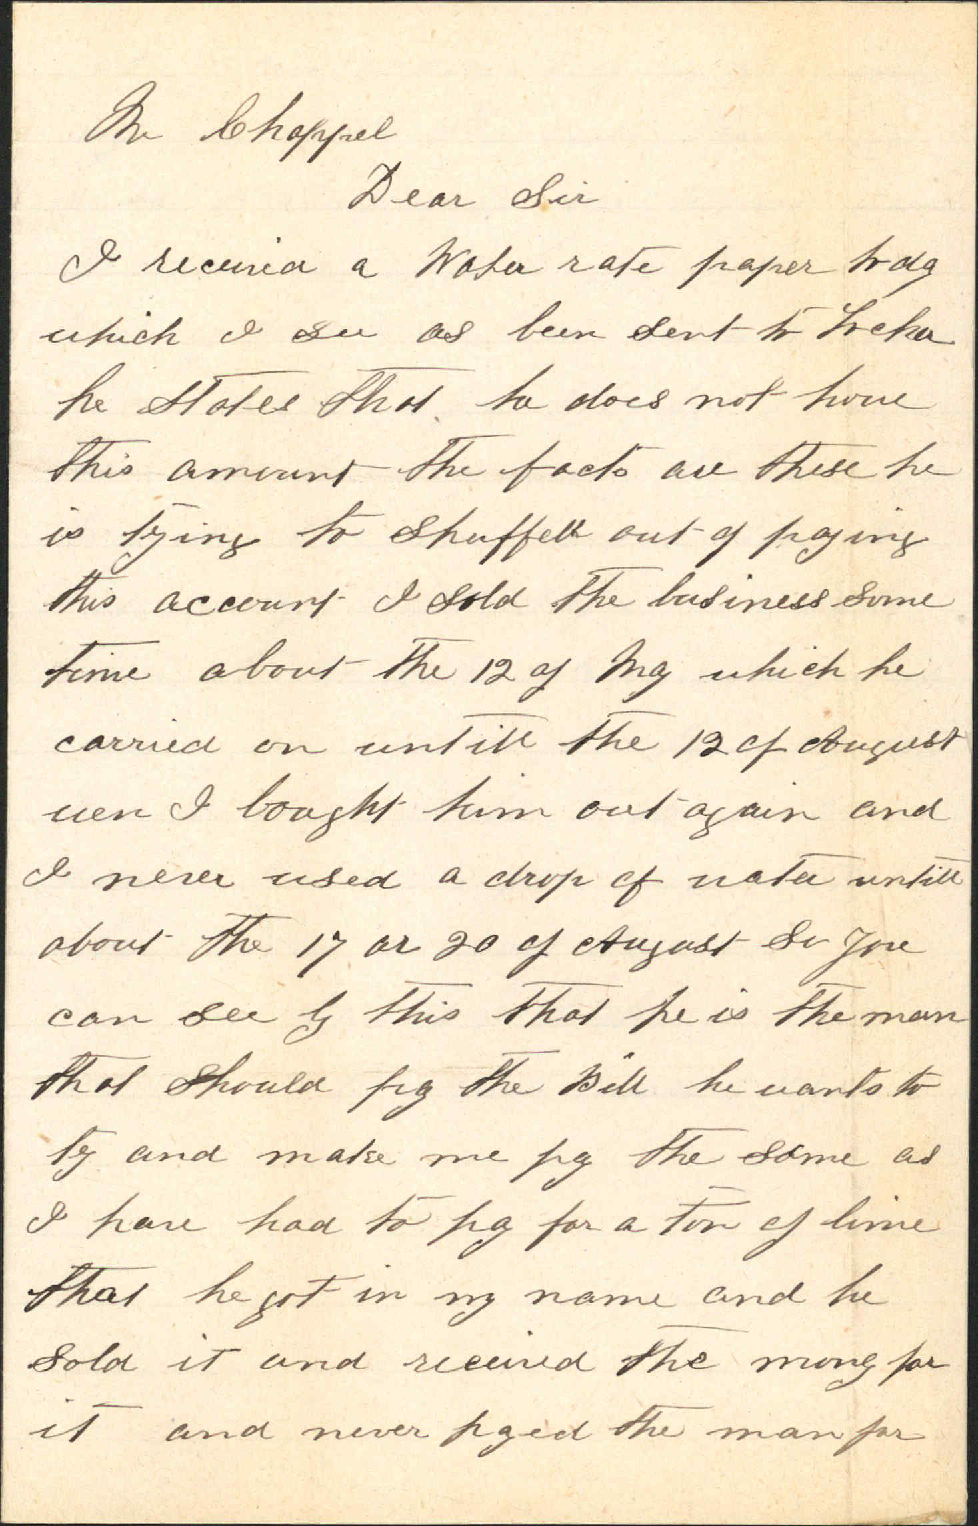 Mr Chappel
Dear Sir
I received a Water rate paper to day
which I see as been sent to
he states that he does not have
this amount the facts are these he
is trying to shuffell out of paying
this account I sold the business some
time about the 12 of May which he
carried on untill the 12 of August
wen I bought him out again and
I never used a drop of water untill
about the 17 or 20 of August So you
can see by this that he is the man
that should pay the Bill he wants to
try and make me pay the same as
I have had to pay for a ton of lime
that he got in my name and he
sold it and received the money for
it and never payed the man for